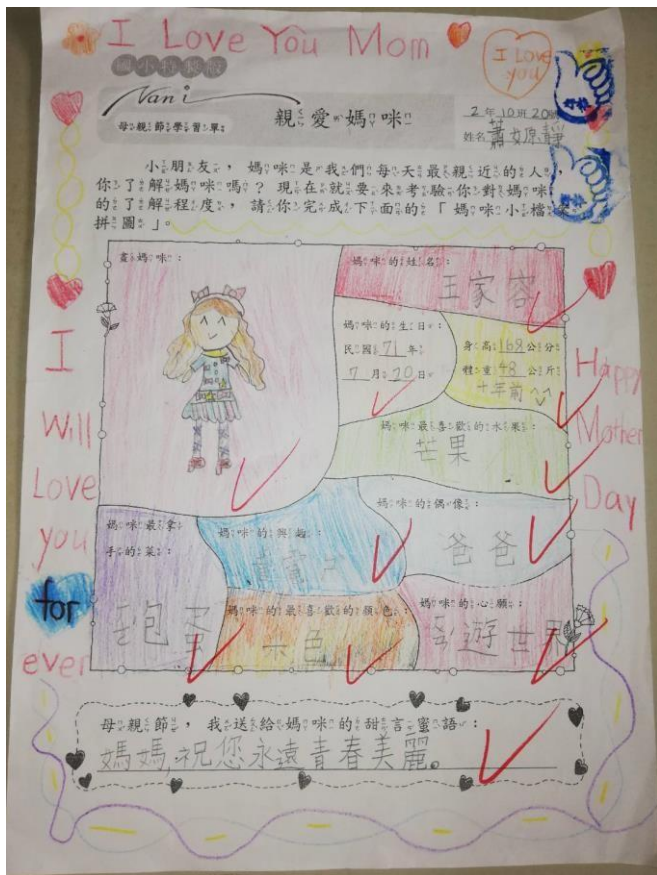 I Love You Mom
I Love
you
國小特表版
Nani
母親節學習單
親愛媽咪
2年10班20號
姓名 蕭
小朋友，媽咪是我們每天最親近的人，
你了解媽咪嗎？現在就要來考驗你對媽咪
的了解程度，請你完成下面的「媽咪小檔案
拼圖」。
畫媽咪：
媽咪的姓名：
王家容
媽咪的生日
民國71年
7月20日
身高168公分
體重48公斤
十年前
媽咪最喜歡的水果：
芒果
媽咪最拿
手的菜：
媽咪的興趣：
媽咪的偶像：
爸爸
蛋
媽咪的最喜歡的顏色：
色
媽咪的心願：
遊世界
母親節，我送給媽咪的甜言蜜語：
媽媽,祝您永遠青春美麗。
I
Will
Love
you
for
ever
Happy
Mother
Day